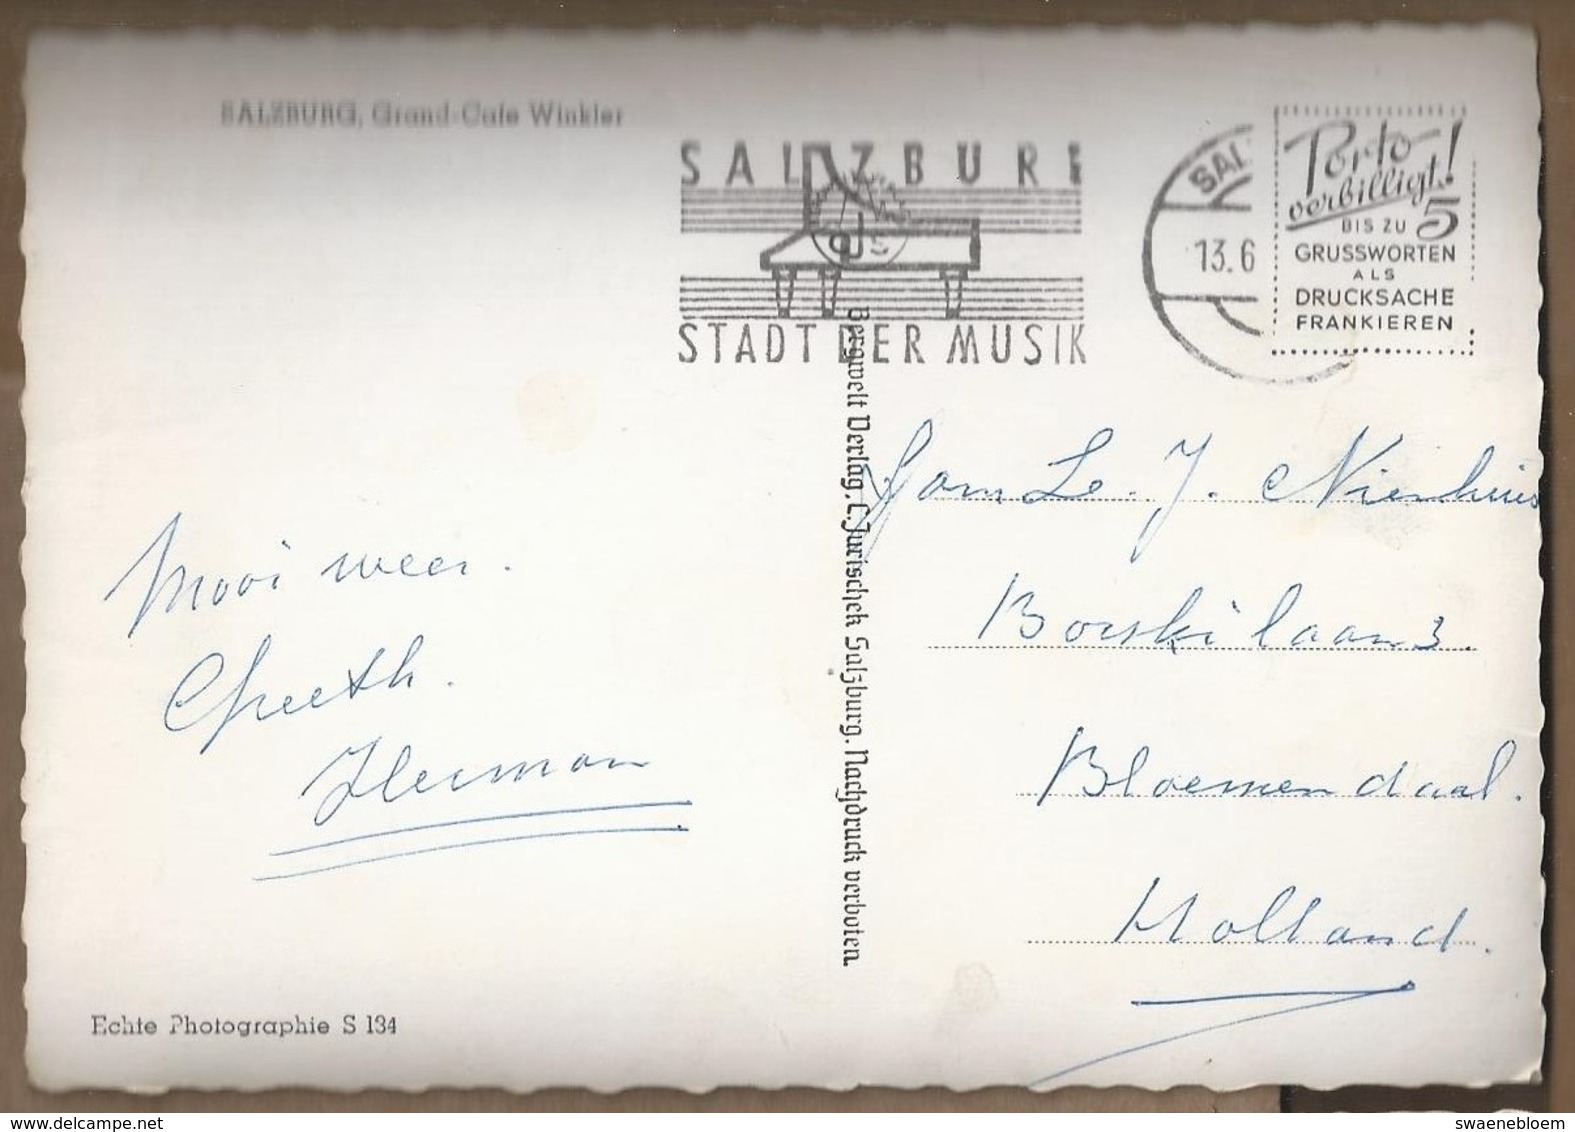 SALZBURG, Grand-Cafe Winkler
SALZBURG
STADT DER MUSIK
SAL
13.6
Porto
verbilligt!
BIS ZU 5
GRUSSWORTEN
ALS
DRUCKSACHE
FRANKIEREN
Bergwelt Verlag, C. Jurischek Salzburg. Nachdruck verboten.
Mooi weer.
Greeth.
Herman
Fam J. Nienhuis
Borskilaan 3.
Bloemendaal.
Holland.
Echte Photographie S 134
www.delcampe.net
swaenebloem